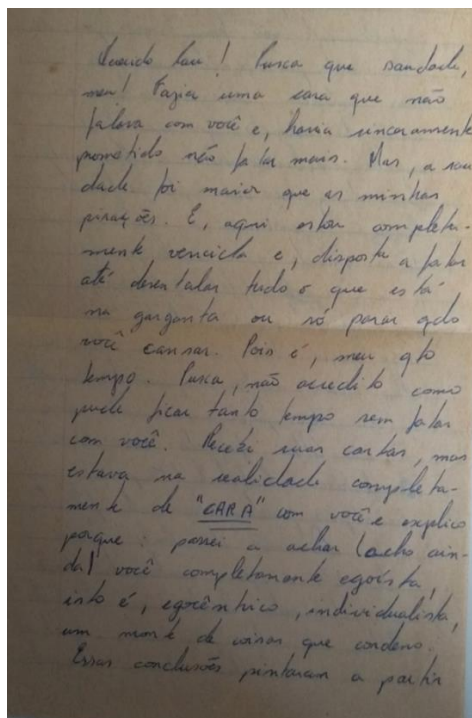 Querido Lau! Puxa que saudade,
meu! Fazia uma cara que não
falava com você e, havia sinceramente
prometido não falar mais. Mas, a sau
dade foi maior que as minhas
pirações. E, aqui estou completa-
mente vencida e, disposta a falar
até desentalar tudo o que está
na garganta ou só parar qdo
você cansar. Pois é, meu qto
tempo. Puxa, não acredito como
pude ficar tanto tempo sem falar
com você. Recebi suas cartas, mas
estava na realidade completa-
mente de "CARA" com você e explico
porque: passei a achar (acho ain-
da) você completamente egoísta,
isto é, egocêntrico, individualista,
um monte de coisas que condeno.
Essas conclusões pintaram a partir